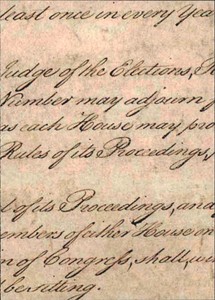 least once in every Year
Judge of the Elections, R
Number may adjourn f
as each House may pro
Rules of its Proceedings,
l of its Proceedings, and
embers of either House on
n of Congress, shall, wi
be sitting.